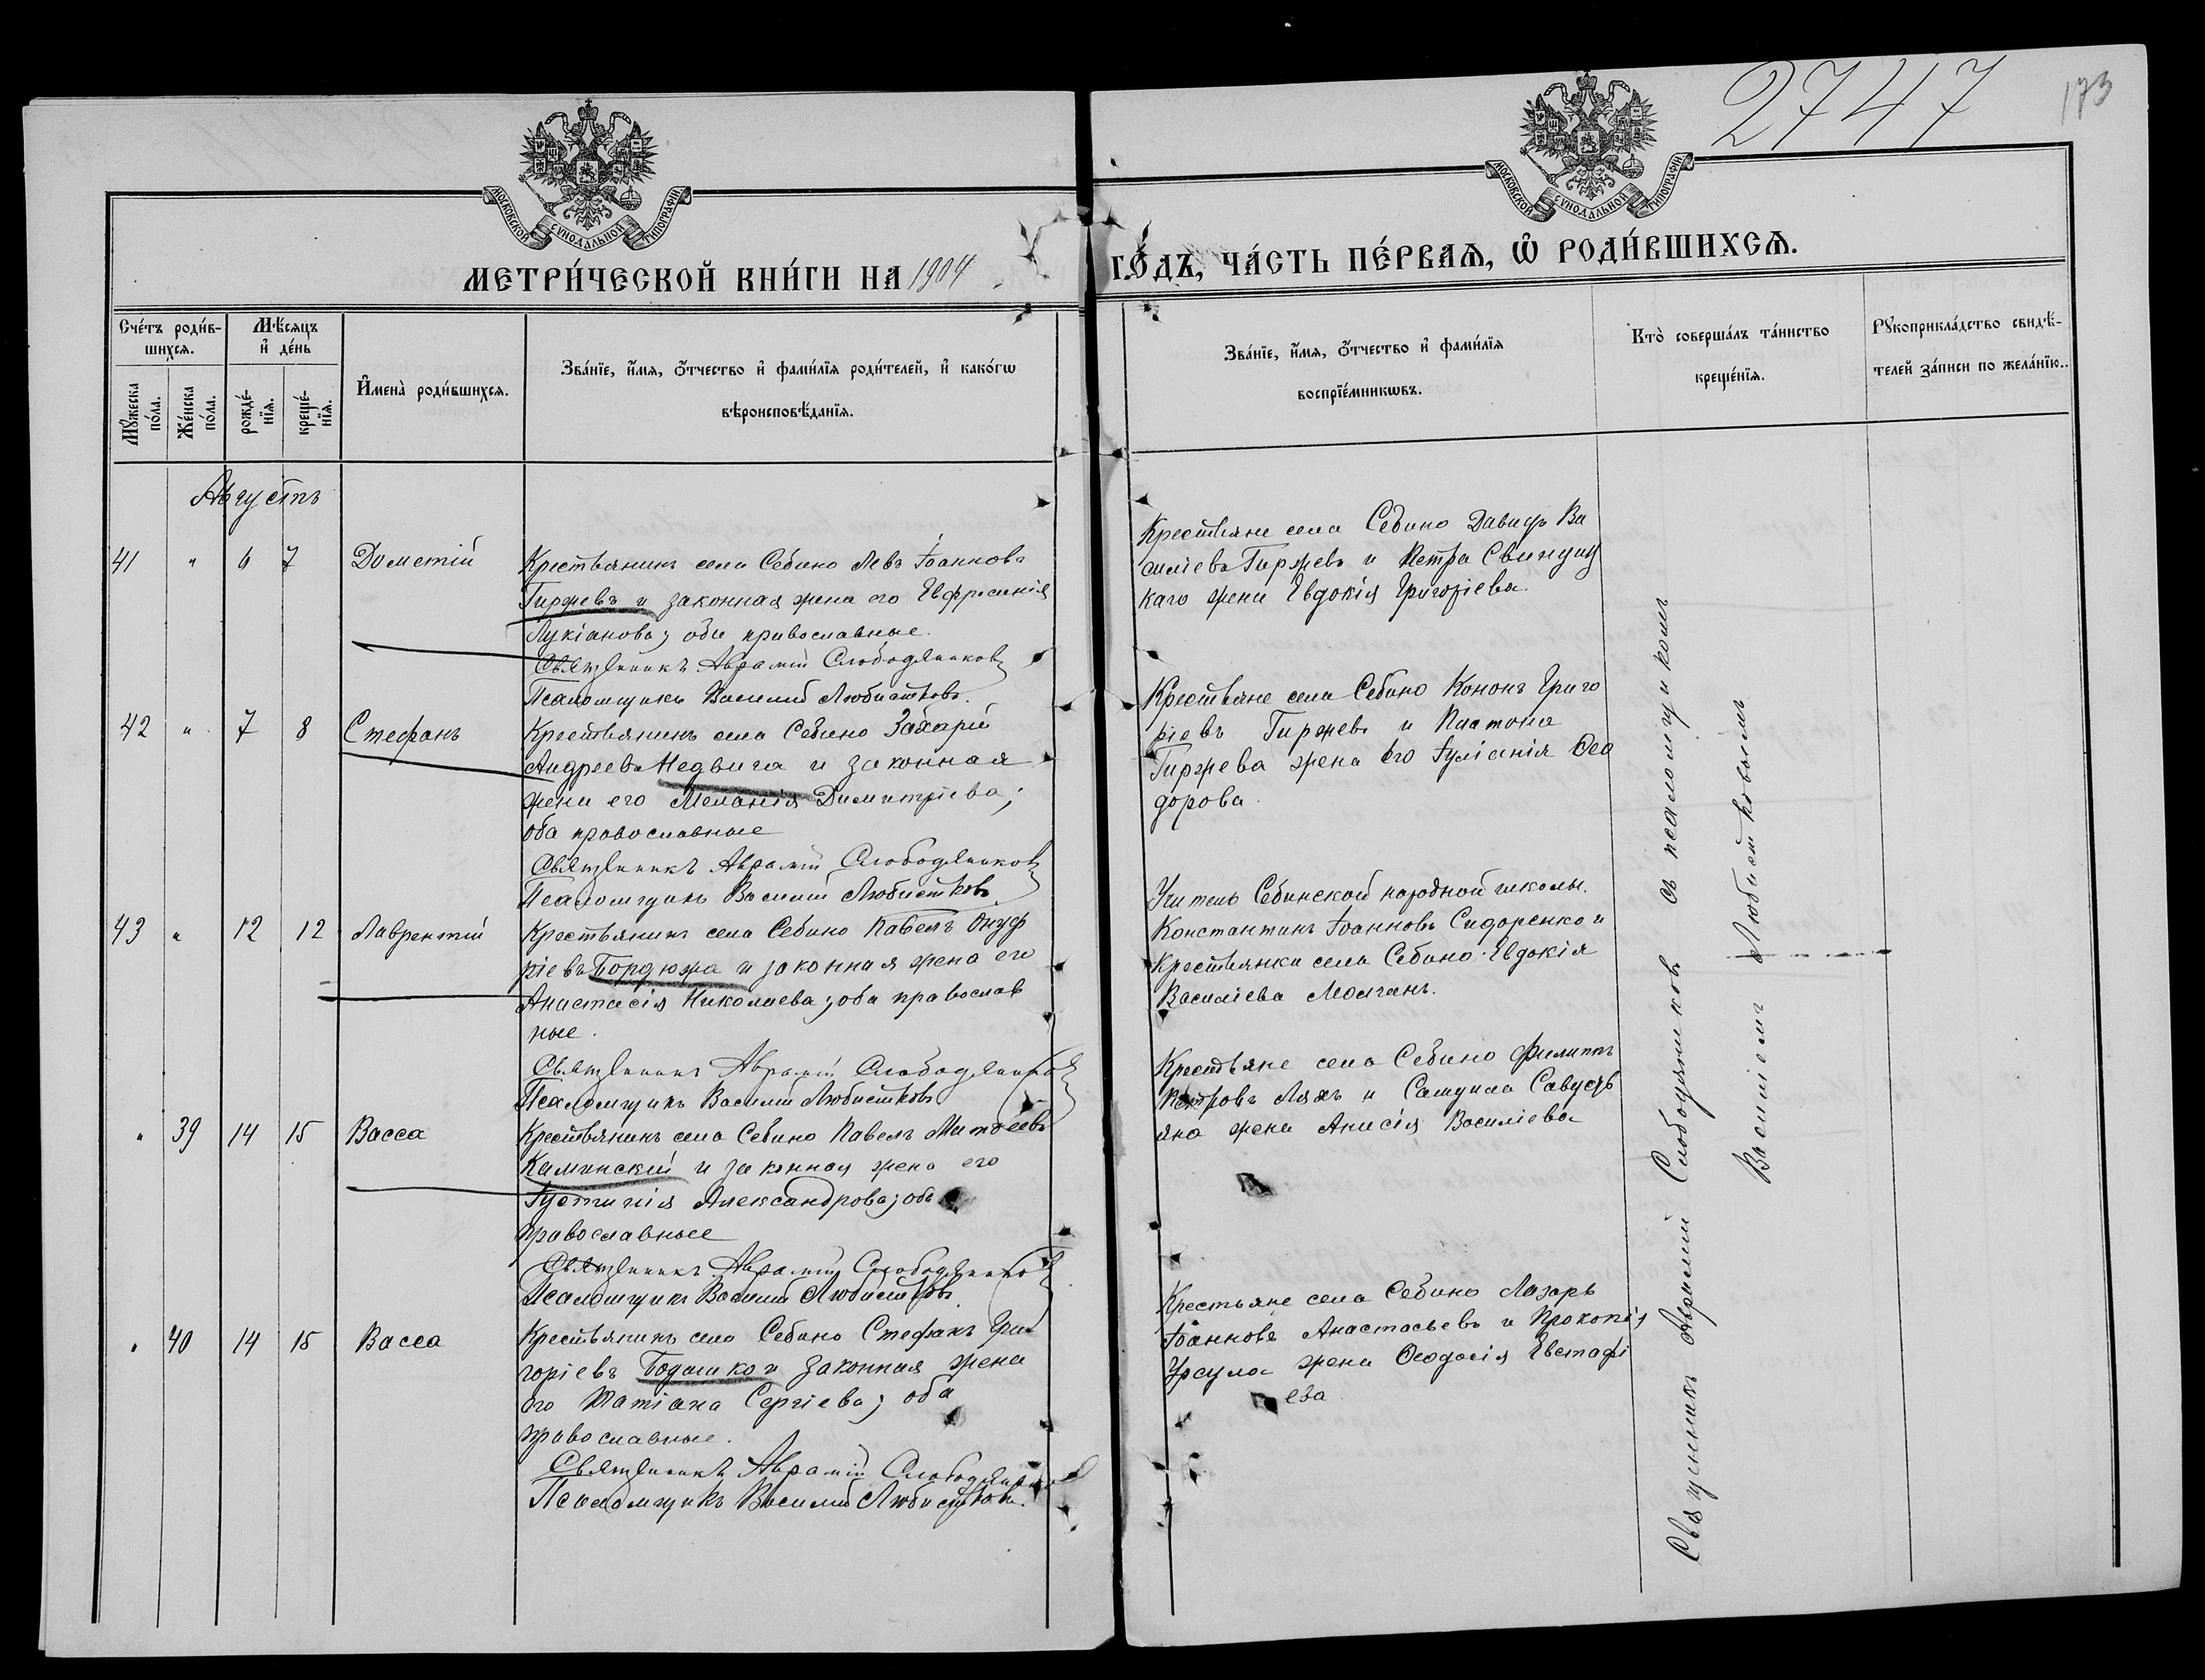 2747
173
МОСКОВСКОЙ СУНОДАЛЬНОЙ ТИПОГРАФІИ
МОСКОВСКОЙ СУНОДАЛЬНОЙ ТИПОГРАФІИ
МЕТРИ́ЧЕСКОЙ КНИ́ГИ НА 1904
ГО́ДЪ, ЧА́СТЬ ПЕ́РВАѦ, Ѿ РОДИ́ВШИХСѦ.
Сче́тъ роди́в-
шихсѧ.
Мꙋ́жеска
по́ла.
Же́нска
по́ла.
Мѣ́сѧцъ
и҆ де́нь
рожде́-
нїѧ.
креще́-
нїѧ.
И҆мена̀ роди́вшихсѧ.
Зва́нїе, и҆́мѧ, ѻ҆́тчество и҆ фами́лїѧ роди́телей, и҆ како́гѡ
вѣроисповѣ́данїѧ.
Зва́нїе, и҆́мѧ, ѻ҆́тчество и҆ фами́лїѧ
воспрїе́мникѡвъ.
Кто̀ соверша́лъ та́инство
креще́нїѧ.
Рꙋкоприкла́дство свидѣ́-
телей за́писи по жела́нїю.
Августъ
41 " 6 7 Дометій
Крестьянинъ села Себино Левъ Іоанновъ
Гиржевъ и законная жена его Евфросинія
Лукіанова; оба православные.
Священникъ Аврамій Слободяников
Псаломщикъ Василий Любистковъ.
Крестьяне села Себино Давидъ Ва
силіевъ Гиржевъ и Петра Свинциц
каго жена Евдокія Григоріева.
42 " 7 8 Стефанъ
Крестьянинъ села Себино Захарій
Андреевъ Недвига и законная
жена его Меланія Димитріева;
оба православные
Священникъ Аврамій Слободяников
Псаломщикъ Василий Любистковъ.
Крестьяне села Себино Кононъ Григо
ріевъ Гиржевъ и Платона
Гиржева жена его Іуліанія Ѳео
дорова.
43 " 12 12 Лаврентій
Крестьянинъ села Себино Павелъ Онуф
ріевъ Бордюжа и законная жена его
Анастасія Николаева; оба православ
ные.
Священникъ Аврамій Слободяников
Псаломщикъ Василий Любистковъ
Учитель Себинской народной школы.
Константинъ Іоанновъ Сидоренко и
Крестьянка села Себино Евдокія
Василіева Молчанъ.
" 39 14 15 Васса
Крестьянинъ села Себино Павелъ Матѳеевъ
Каминский и законная жена его
Іустинія Александрова; оба
православные
Священникъ Аврамій Слободяников
Псаломщикъ Василий Любистковъ
Крестьяне села Себино Филиппъ
Петровъ Ляхъ и Самуила Савустѣ
яна жена Анисія Василіева
" 40 14 15 Васса
Крестьянинъ села Себино Стефанъ Гри
горіевъ Бодашко и законная жена
его Татіана Сергіева; оба
православные.
Священникъ Аврамій Слободяников
Псаломщикъ Василий Любистковъ.
Крестьяне села Себино Лазарь
Іоанновъ Анастасьевъ и Прокопія
Урсула жена Ѳеодосія Евстафі
ева
Священникъ Аврамий Слободяников съ псаломщикомъ
Василіемъ Любистковымъ